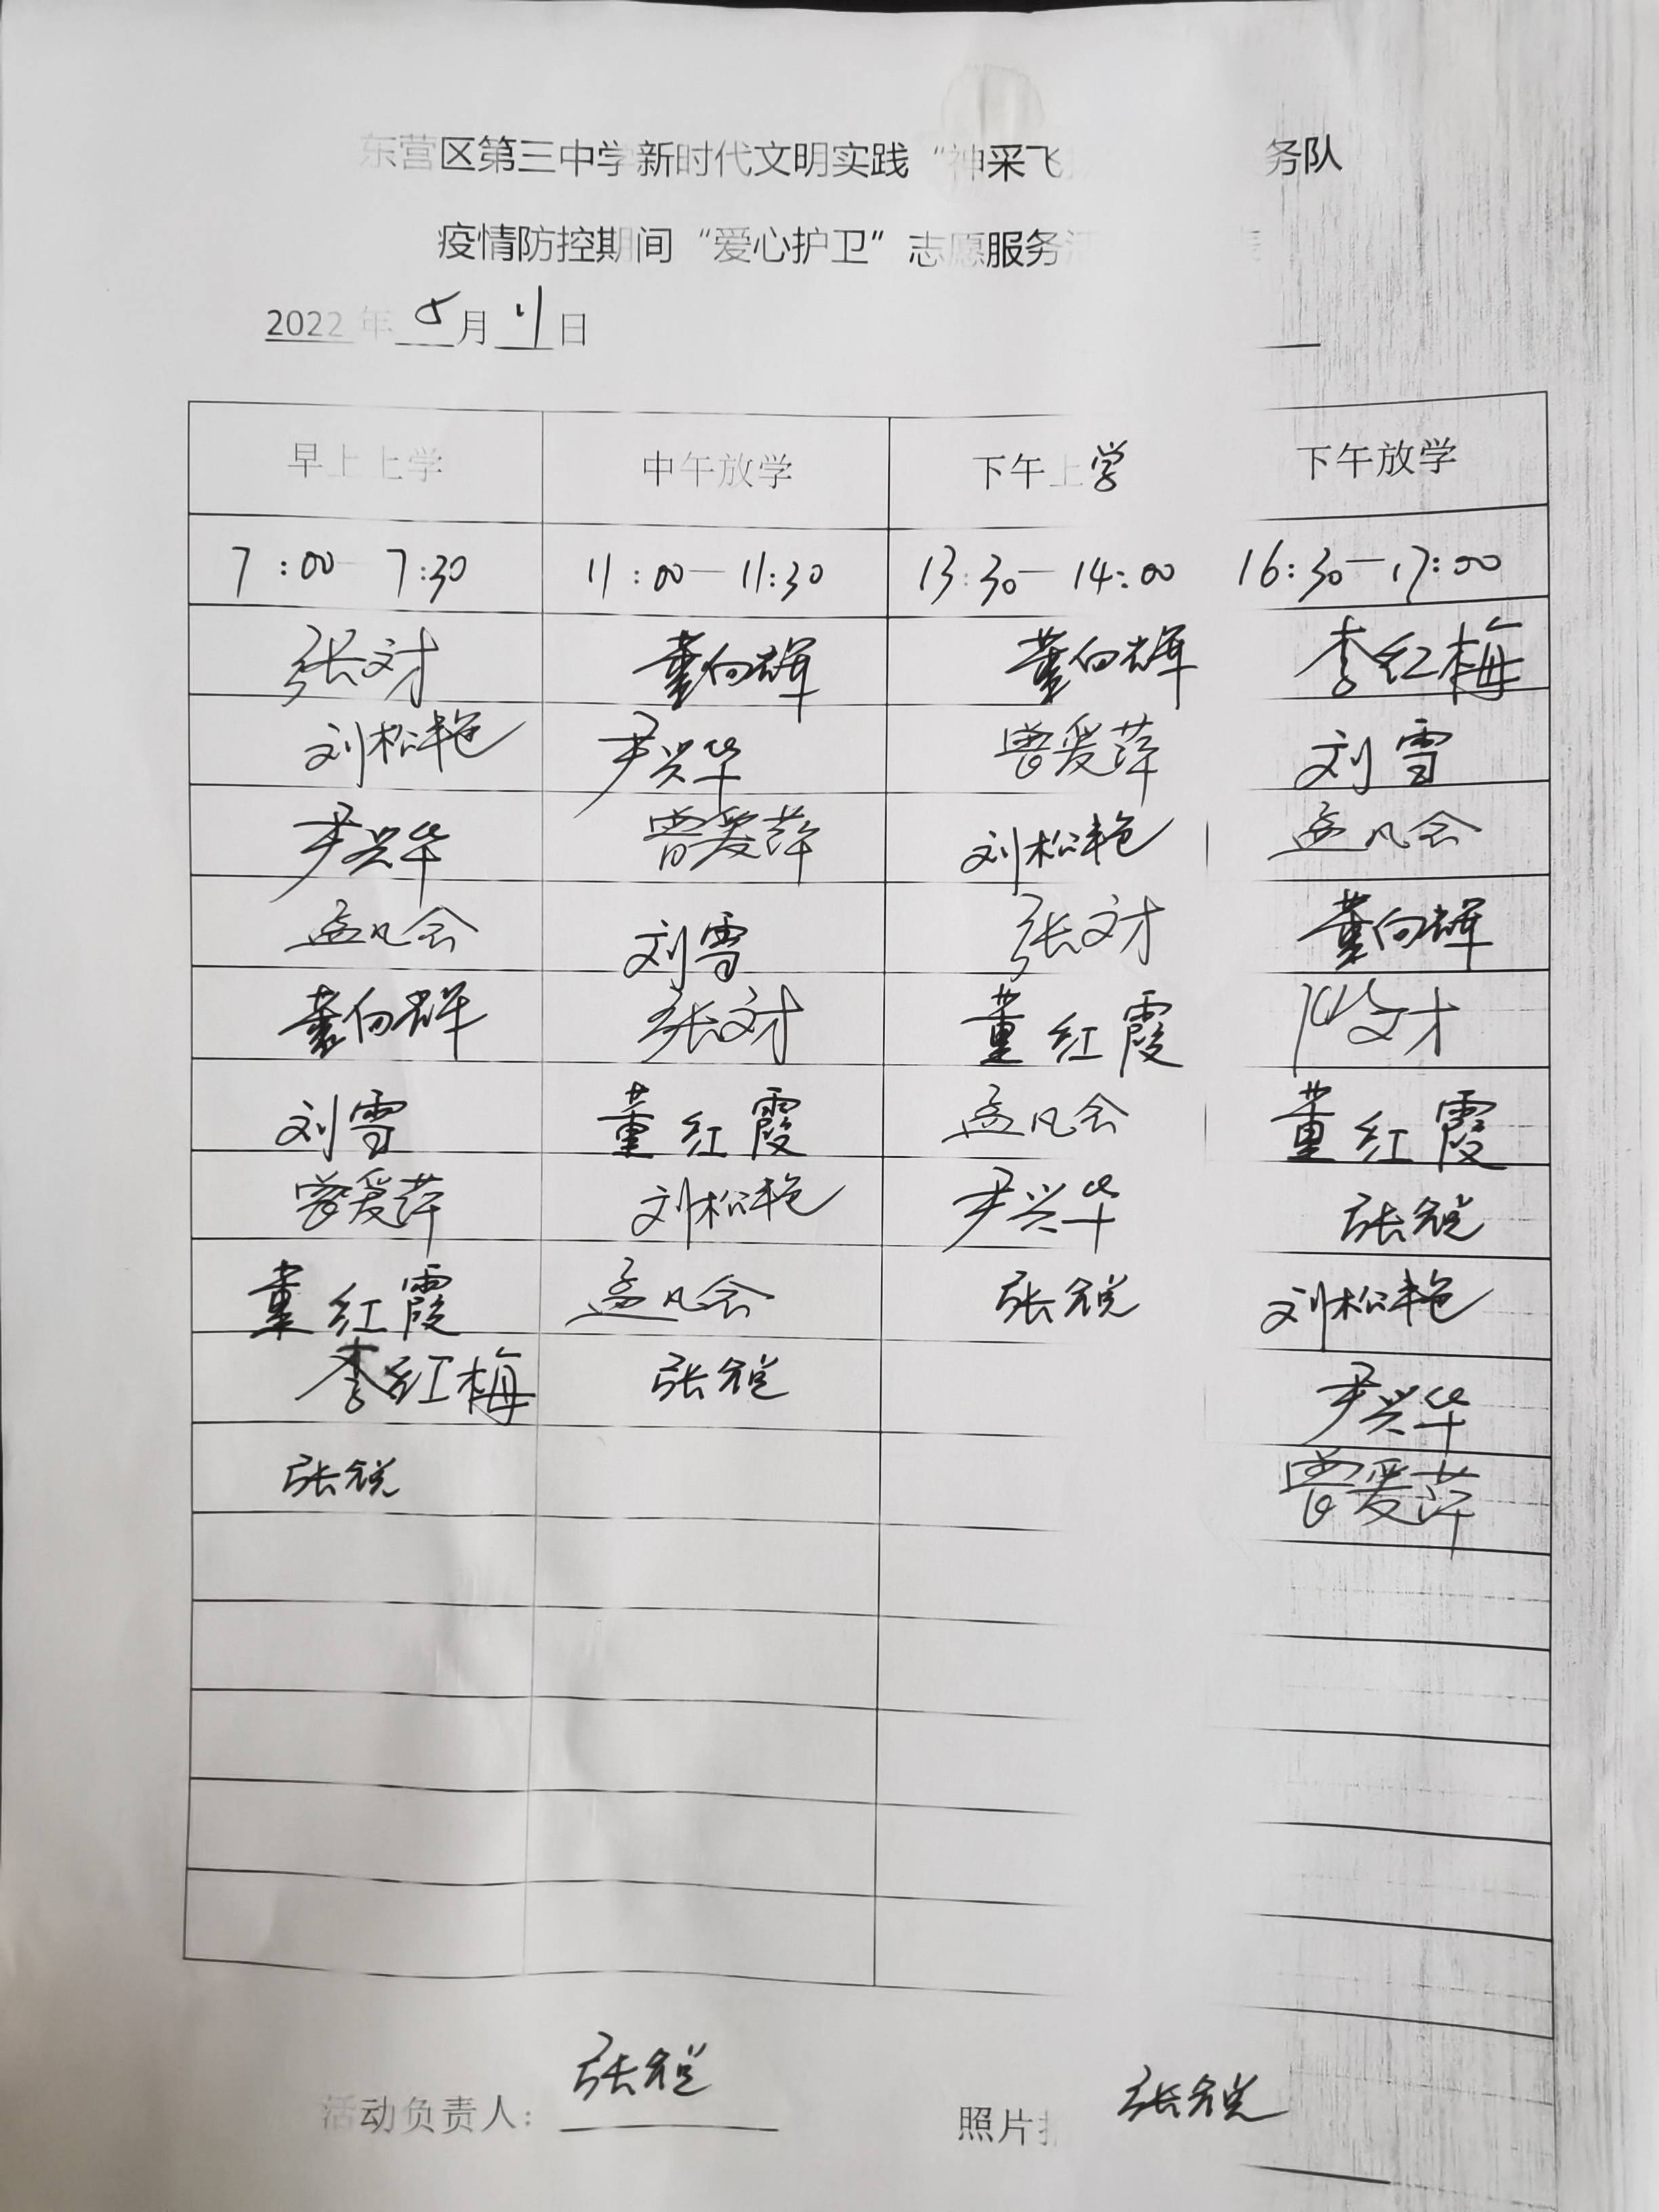 东营区第三中学新时代文明实践“神采飞 务队
疫情防控期间“爱心护卫”志愿服务活
2022年 5月 11日
早上上学 中午放学 下午上学 下午放学
7:00 7:30 11:00—11:30 13:30—14:00 16:30—17:00
张文才 董向辉 董向辉 李红梅
刘松艳 尹兴华 曾爱萍 刘雪
尹兴华 曾爱萍 刘松艳 孟凡会
孟凡会 刘雪 张文才 董向辉
董向辉 张文才 董红霞 文才
刘雪 董红霞 孟凡会 董红霞
曾爱萍 刘松艳 尹兴华 张锐
董红霞 孟凡会 张锐 刘松艳
李红梅 张锐 尹兴华
张锐 曾爱萍
活动负责人: 张锐 照片 张锐